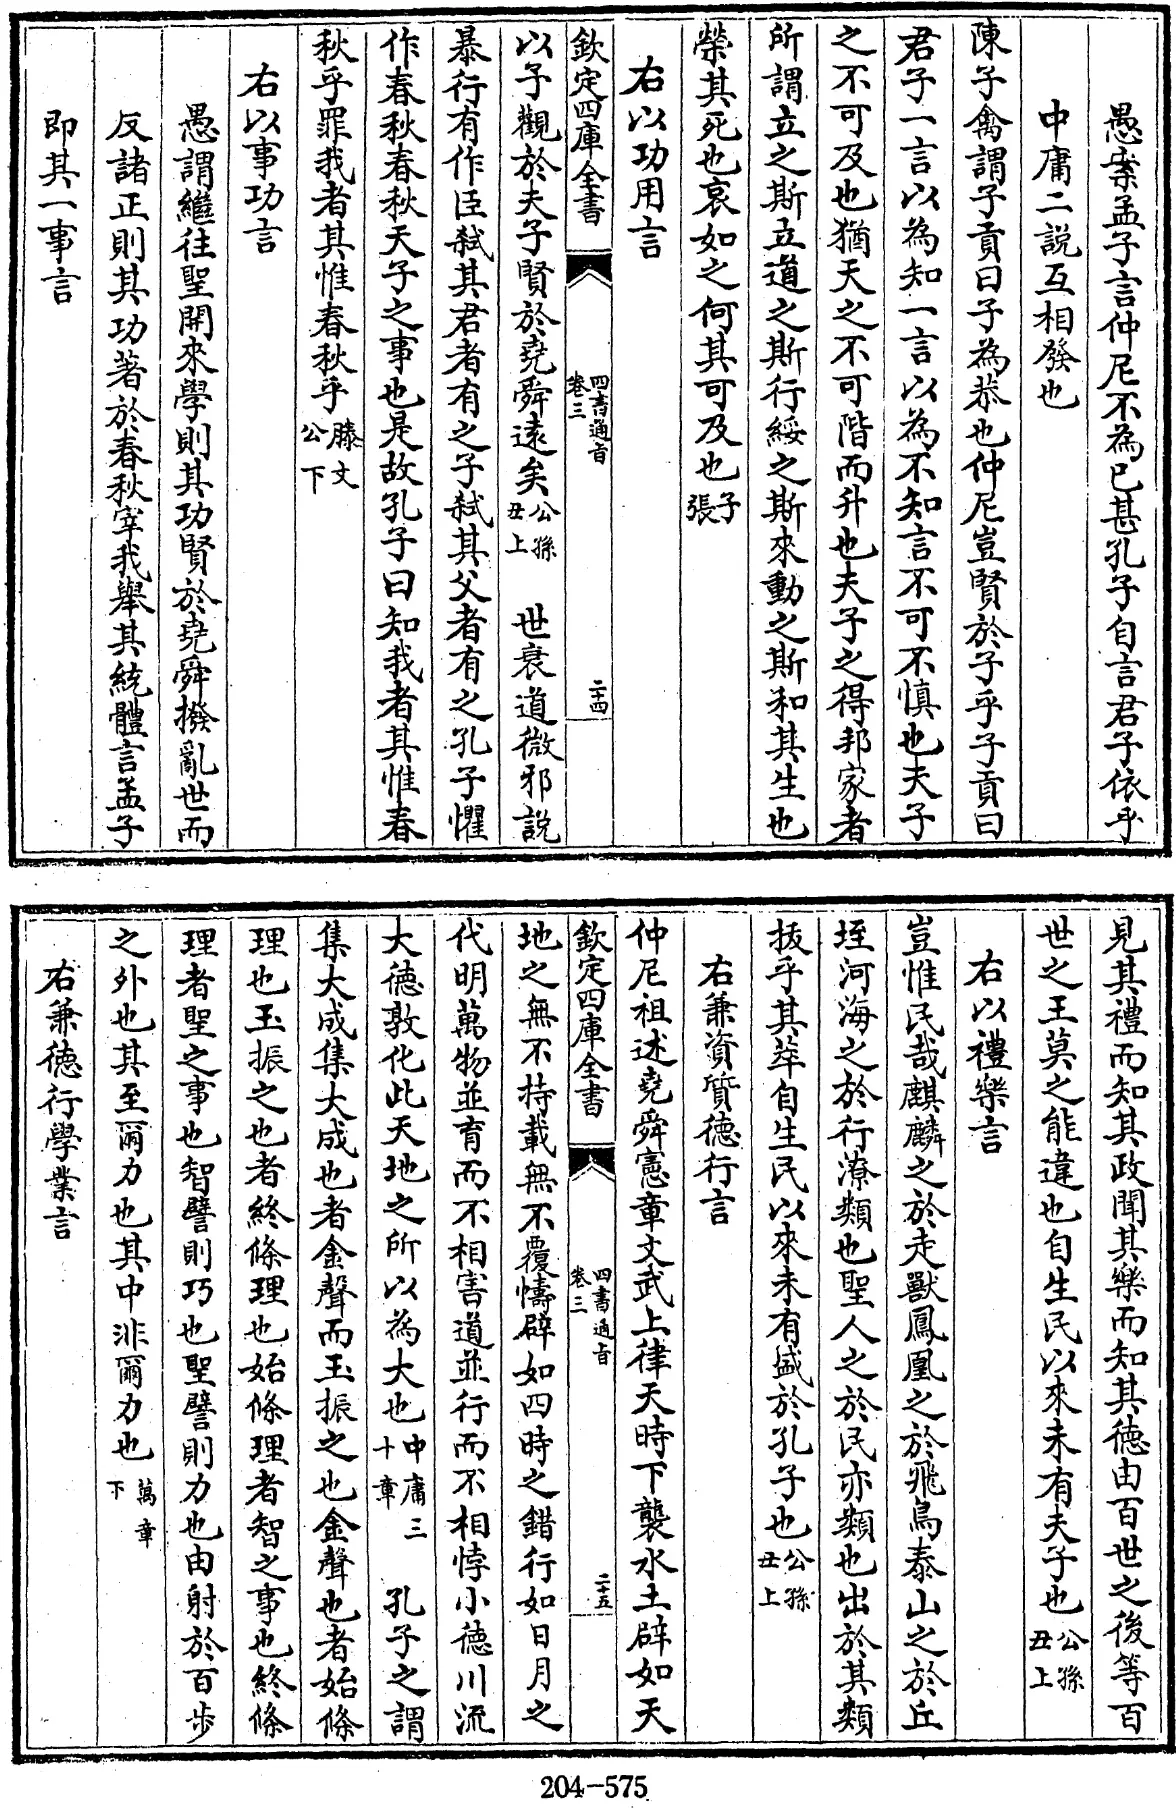 愚案孟子言仲尼不為已甚孔子自言君子依乎
中庸二説互相發也
陳子禽謂子貢曰子為恭也仲尼豈賢於子乎子貢曰
君子一言以為知一言以為不知言不可不慎也夫子
之不可及也猶天之不可階而升也夫子之得邦家者
所謂立之斯立道之斯行綏之斯來動之斯和其生也
榮其死也哀如之何其可及也子張
右以功用言
欽定四庫全書 四書通旨卷三 二十四
以子觀於夫子賢於堯舜逺矣公孫丑上 世衰道微邪説
暴行有作臣弑其君者有之子弑其父者有之孔子懼
作春秋春秋天子之事也是故孔子曰知我者其惟春
秋乎罪我者其惟春秋乎滕文公下
右以事功言
愚謂繼往聖開來學則其功賢於堯舜撥亂世而
反諸正則其功著於春秋宰我舉其統體言孟子
即其一事言
見其禮而知其政聞其樂而知其德由百世之後等百
世之王莫之能違也自生民以來未有夫子也公孫丑上
右以禮樂言
豈惟民哉麒麟之於走獸鳳凰之於飛鳥泰山之於丘
垤河海之於行潦類也聖人之於民亦類也出於其類
拔乎其萃自生民以來未有盛於孔子也公孫丑上
右兼資質德行言
仲尼祖述堯舜憲章文武上律天時下襲水土辟如天
欽定四庫全書 四書通旨卷三 二十五
地之無不持載無不覆幬辟如四時之錯行如日月之
代明萬物並育而不相害道並行而不相悖小德川流
大德敦化此天地之所以為大也中庸三十章 孔子之謂
集大成集大成也者金聲而玉振之也金聲也者始條
理也玉振之也者終條理也始條理者智之事也終條
理者聖之事也智譬則巧也聖譬則力也由射於百步
之外也其至爾力也其中非爾力也萬章下
右兼德行學業言
204-575